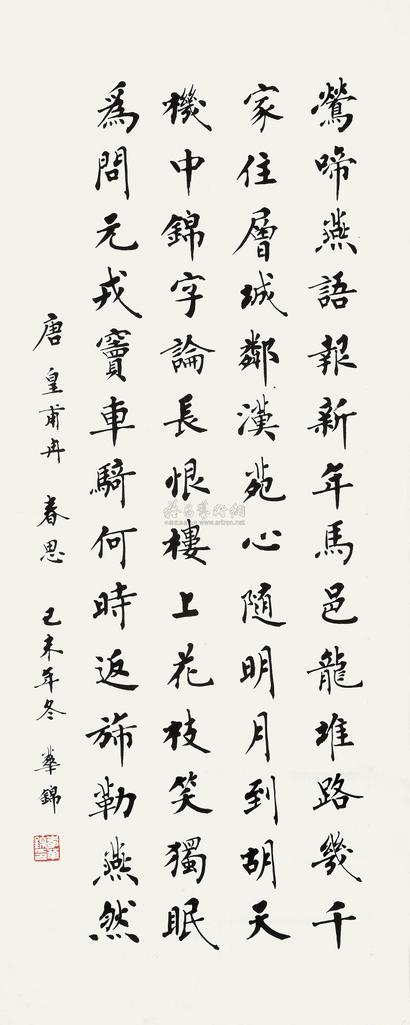 鶯啼燕語報新年馬邑龍堆路幾千
家住層城鄰漢苑心隨明月到胡天
機中錦字論長恨樓上花枝笑獨眠
爲問元戎竇車騎何時返旆勒燕然
唐 皇甫冉 春思 己未年冬 華錦